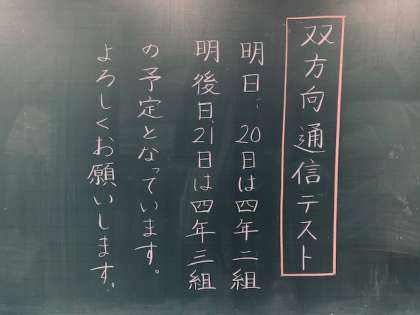 双方向通信テスト
明日、20日は四年二組
明後日、21日は四年三組
の予定となっています。
よろしくお願いします。